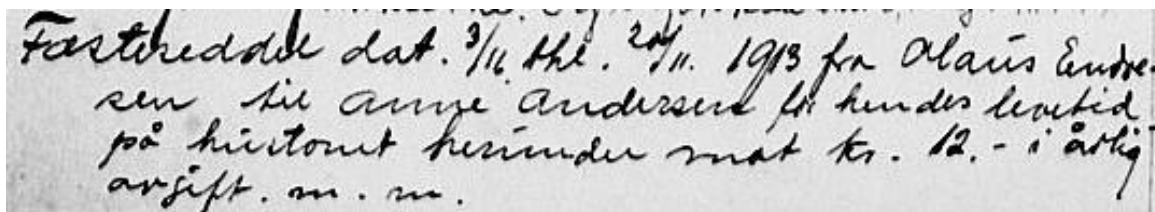 Fæsteseddel dat. 3/11 thl. 20/11. 1913 fra Olaus Endre-
sen til Anne Andersen for hendes levetid
på hustomt herunder mot kr. 12.- i årlig
avgift. m. m.